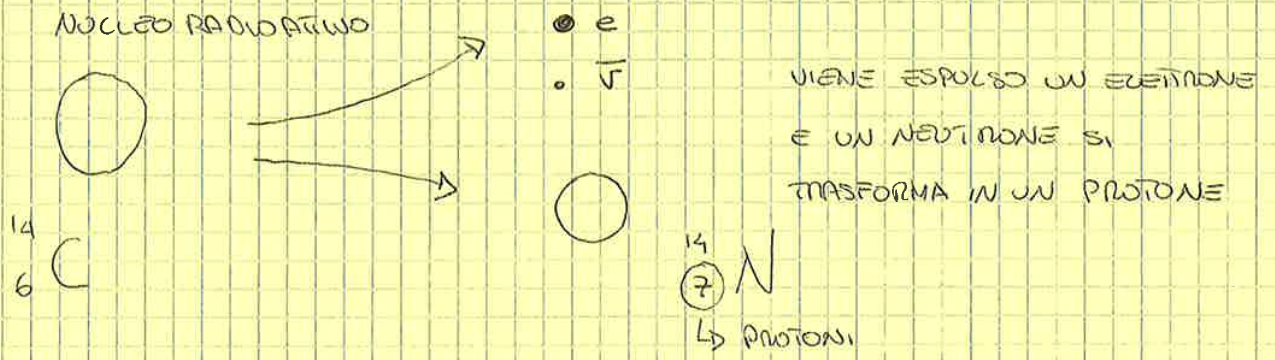 NUCLEO RADIOATTIVO
e
ν̅
VIENE ESPULSO UN ELETTRONE
E UN NEUTRONE SI
TRASFORMA IN UN PROTONE
14
6 C
14
7 N
↳ PROTONI